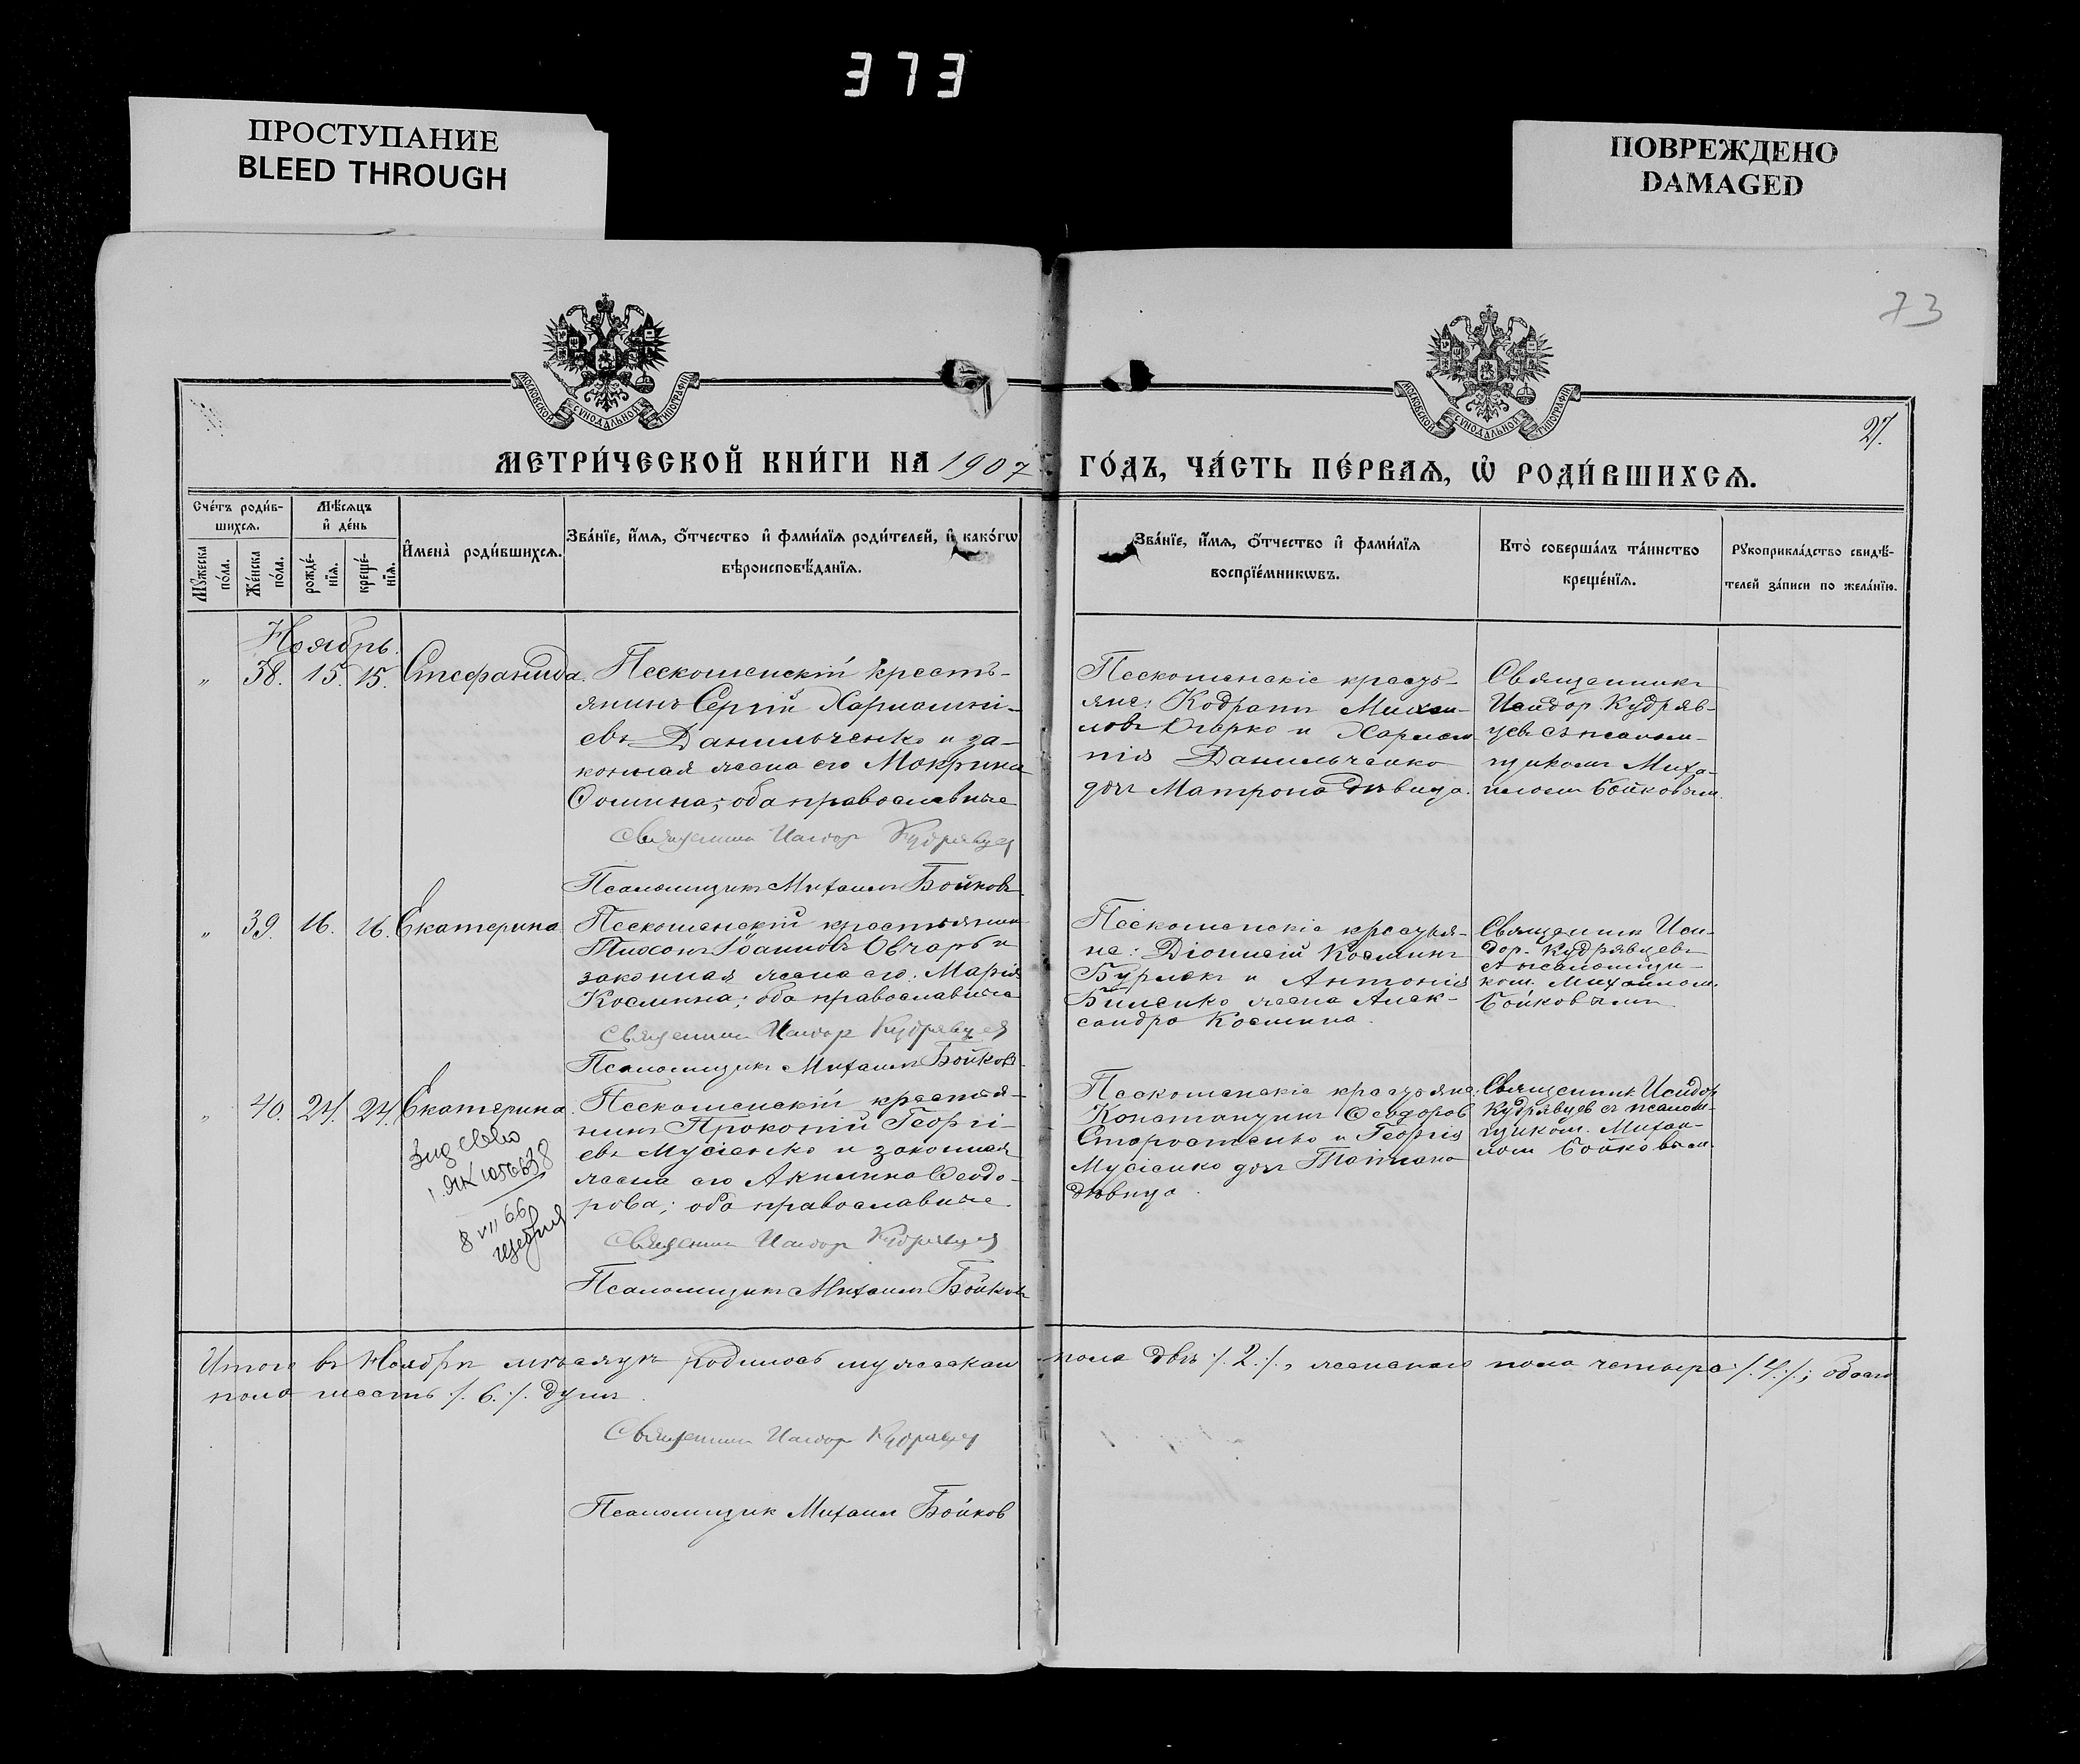 373
ПРОСТУПАНИЕ
BLEED THROUGH
ПОВРЕЖДЕНО
DAMAGED
73
МОСКОВСКОЙ СУНОДАЛЬНОЙ ТИПОГРАФІИ
МОСКОВСКОЙ СУНОДАЛЬНОЙ ТИПОГРАФІИ
27.
МЕТРИ́ЧЕСКОЙ КНИ́ГИ НА 1907 ГО́ДЪ, ЧА́СТЬ ПЕ́РВАѦ, Ѡ҆ РОДИ́ВШИХСѦ.
Сче́тъ роди́в-
шихсѧ.
Мꙋ́жеска по́ла.
Же́нска по́ла.
Мѣ́сяцъ
и҆ де́нь
рожде́-
нїѧ.
креще́-
нїѧ.
И҆мена̀ роди́вшихсѧ.
Зва́нїе, и҆́мѧ, ѻ҆́тчество и҆ фами́лїѧ роди́телей, и҆ како́гѡ
вѣроисповѣ́данїѧ.
Зва́нїе, и҆́мѧ, ѻ҆́тчество и҆ фами́лїѧ
воспрїе́мникѡвъ.
Кто̀ соверша́лъ та́инство
креще́нїѧ.
Рꙋкоприкла́дство свидѣ́-
телей за́писи по жела́нїю.
Ноябрь.
„ 38. 15. 15. Стефанида.
Пескошенскій кресть-
янинъ Сергій Харлампі-
евъ Данильченко и за-
конная жена его Мокрина
Ѳомина; оба православные
Священник Исидор Кудрявцев
Псаломщикъ Михаилъ Бойковъ
Пескошенскіе кресть-
яне: Кодратъ Михаи-
ловъ и Харлам
пія Данильченко
дочь Матрона дѣвица.
Священникъ
Исидор Кудряв-
цевъ съ псалом-
щикомъ Миха-
иломъ Бойковым.
„ 39. 16. 16. Екатерина
Пескошенскій крестьянин
Тихонъ Іоанновъ Овчарь и
законная жена его Марія
Космина; оба православные
Священник Исидор Кудрявцев
Псаломщикъ Михаилъ Бойковъ
Пескошенскіе крестья-
не: Діонисій Косминъ
Бурлакъ и Антонія
Биленко жена Алек-
сандра Космина.
Священник Иси-
дор. Кудрявцевъ
съ псаломщи-
ком. Михаилом.
Бойковымъ
„ 40. 24. 24. Екатерина.
Пескошенскій крестья-
нинъ Прокопій Георгі-
евъ Мусіенко и законная
жена его Акилина Ѳеодо-
рова; оба православные
Священник Исидор Кудрявцев
Псаломщикъ Михаилъ Бойковъ
ЯК 1056638
8 VII 66
Пескошенскіе крестьяне
Константинъ Ѳеодоров
Старостенко и Георгія
Мусіенко дочь Татіана
дѣвица.
Священник Исидор
Кудрявцевъ съ псалом-
щиком. Михаи-
лом Бойковым.
Итого въ Ноябрѣ мѣсяцѣ родилось мужескаго пола двѣ /. 2./., женскаго пола четыре /. 4./.; обоего
пола шесть /. 6./. душъ.
Священник Исидор Кудрявцев
Псаломщик Михаил Бойков